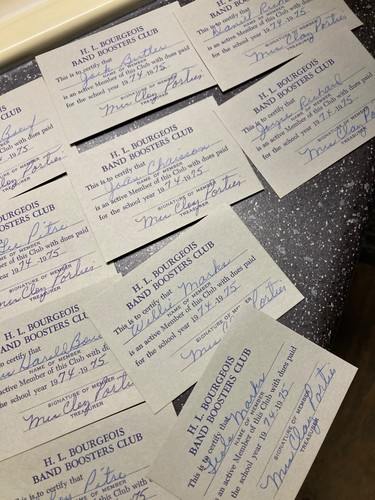 H. L. BOURGEOIS
BAND BOOSTERS CLUB
This is to certify that
NAME OF MEMBER
is an active Member of this Club with dues paid
for the school year 1974-1975
Mrs Clay Porties
SIGNATURE OF MEMBER
TREASURER
BAND BOOSTERS CLUB
This is to certify that Daniel
NAME OF MEMBER
is an active Member of this Club with dues paid
for the school year 1974-1975
SIGNATURE OF MEMBER
Mrs Clay Porties
TREASURER
H. L. BOURGEOIS
BAND BOOSTERS CLUB
This is to certify that
NAME OF MEMBER
is an active Member of this Club with dues paid
for the school year 1974-1975
SIGNATURE OF MEMBER
Mrs Clay
TREASURER
CLUB
NAME OF MEMBER
Club with dues paid
-1975
SIGNATURE OF MEMBER
Clay Porties
TREASURER
H. L. BOURGEOIS
BAND BOOSTERS CLUB
This is to certify that
NAME OF MEMBER
is an active Member of this Club with dues paid
for the school year 1974-1975
SIGNATURE OF MEMBER
Mrs Clay Porties
TREASURER
BOURGEOIS
BOOSTERS CLUB
that Pitre
NAME OF MEMBER
Member of this Club with dues
year 1974-1975
SIGNATURE OF MEMBER
Mrs Clay Porties
TREASURER
H. L. BOURGEOIS
BAND BOOSTERS CLUB
This is to certify that
Willie Marks
NAME OF MEMBER
is an active Member of this Club with dues paid
for the school year 1974-1975
SIGNATURE OF
Mrs Porties
H. L. BOURGEOIS
BAND BOOSTERS CLUB
to certify that
Darell
NAME OF MEMBER
active Member of this Club with dues
the school year 1974-1975
SIGNATURE OF MEMBER
Mrs Clay Porties
TREASURER
H. L. BOURGEOIS
BAND BOOSTERS CLUB
This is to certify that
Marks
NAME OF MEMBER
is an active Member of this Club with dues paid
for the school year 1974-1975
SIGNATURE OF MEMBER
Mrs Clay Porties
TREASURER
H. L. BOURGEOIS
BAND BOOSTERS CLUB
certify that
Pitre